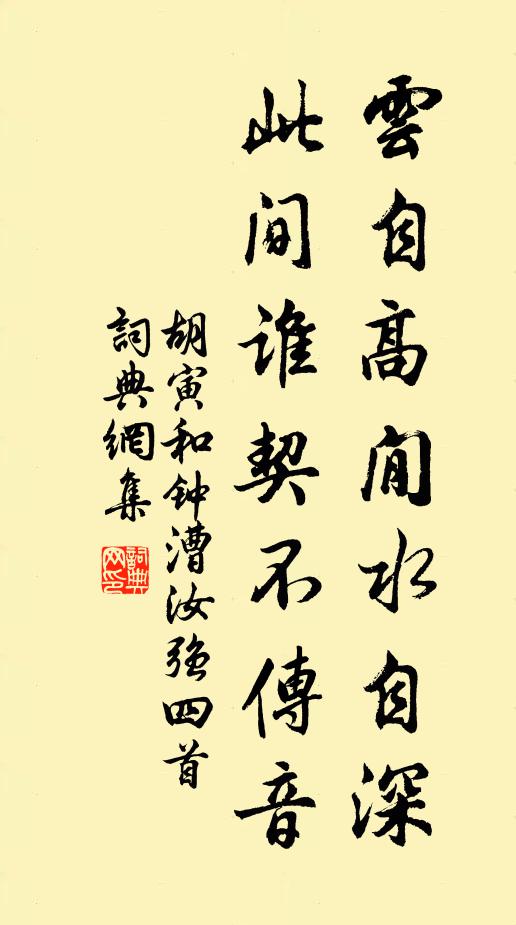 雲自高閒水自深
此间谁契不傳音
胡寅和钟漕汝强四首
詞典網集
詞典网印